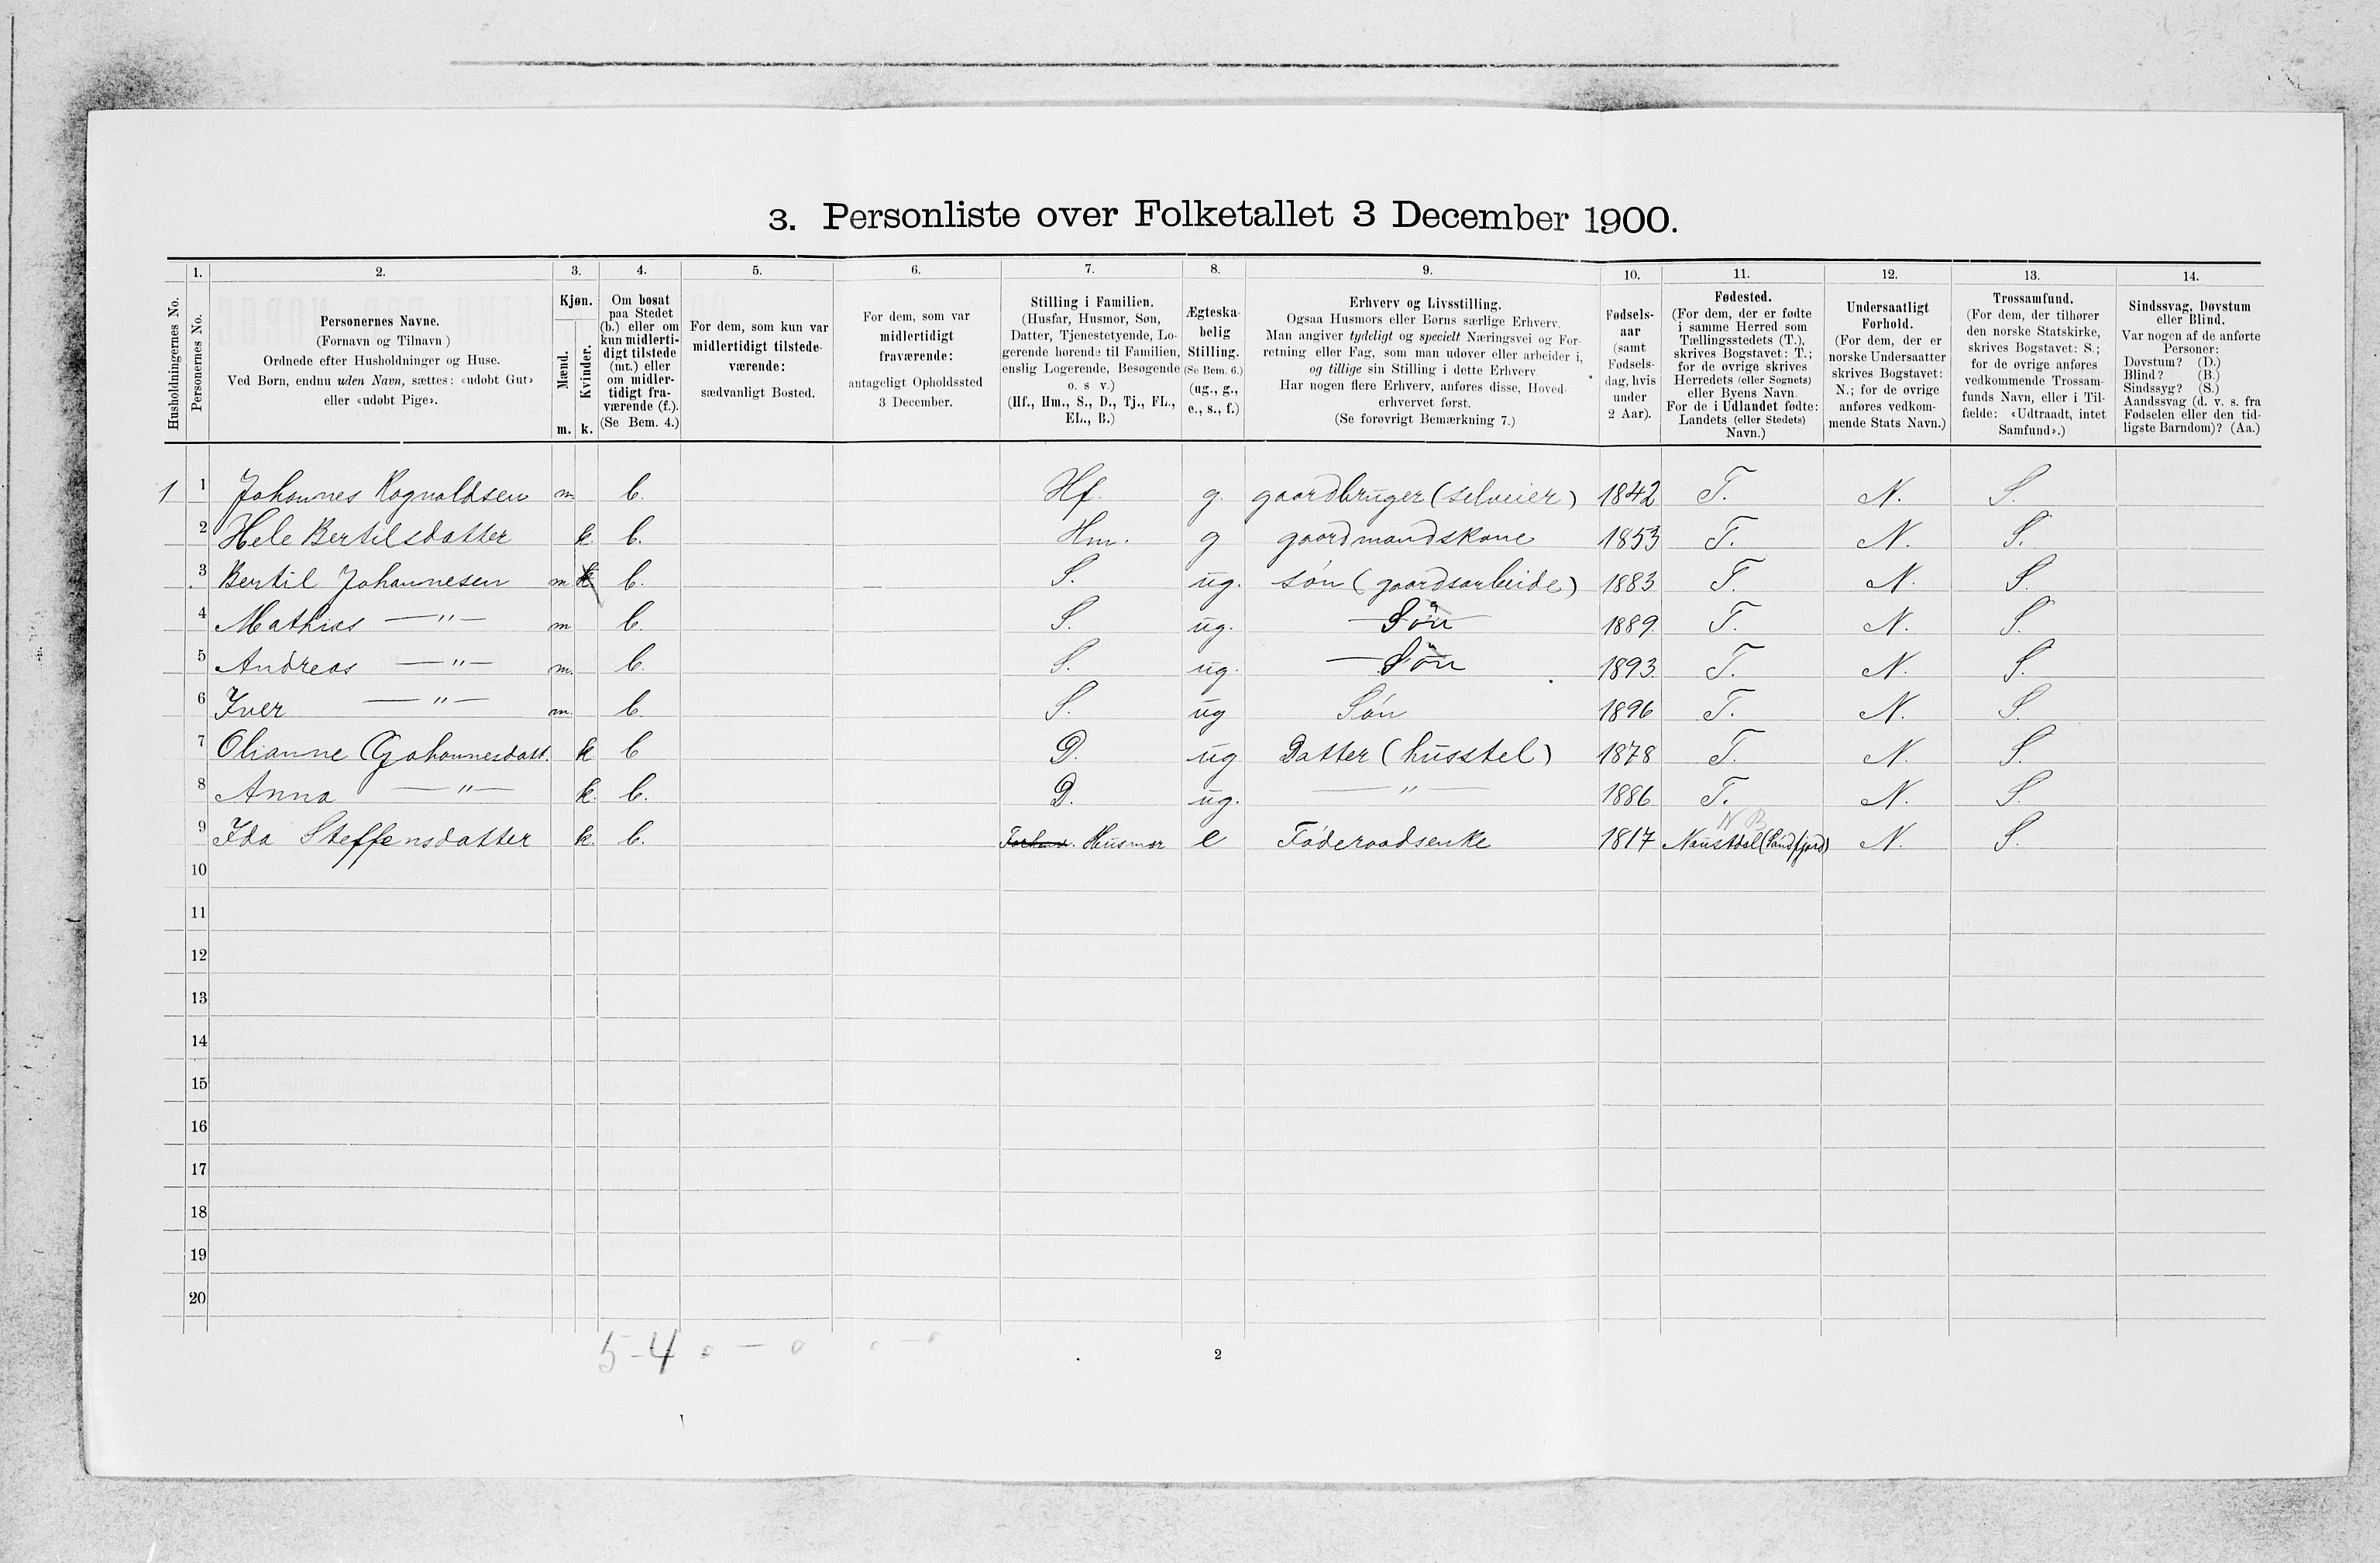 3. Personliste over Folketallet 3 December 1900.
1. 2. 3. 4. 5. 6. 7. 8. 9. 10. 11. 12. 13. 14.
Husholdningernes No.
Personernes No.
Personernes Navne.
(Fornavn og Tilnavn)
Ordnede efter Husholdninger og Huse.
Ved Børn, endnu uden Navn, sættes: «udøbt Gut»
eller «udøbt Pige».
Kjøn.
Mænd.
Kvinder.
m. k.
Om bosat
paa Stedet
(b.) eller om
kun midlerti-
digt tilstede
(mt.) eller
om midler-
tidigt fra-
værende (f.).
(Se Bem. 4.)
For dem, som kun var
midlertidigt tilstede-
værende:
sædvanligt Bosted.
For dem, som var
midlertidigt
fraværende:
antageligt Opholdssted
3 December.
Stilling i Familien.
(Husfar, Husmor, Søn,
Datter, Tjenestetyende, Lo-
gerende hørende til Familien,
enslig Logerende, Besøgende
o. s v.)
(Hf., Hm., S., D., Tj., FL.,
EL., B.)
Ægteska-
belig
Stilling.
(Se Bem. 6.)
(ug., g.,
e., s., f.)
Erhverv og Livsstilling.
Ogsaa Husmors eller Børns særlige Erhverv.
Man angiver tydeligt og specielt Næringsvei og For-
retning eller Fag, som man udøver eller arbeider i,
og tillige sin Stilling i dette Erhverv.
Har nogen flere Erhverv, anføres disse, Hoved-
erhvervet først.
(Se forøvrigt Bemærkning 7.)
Fødsels-
aar
(samt
Fødsels-
dag, hvis
under
2 Aar).
Fødested.
(For dem, der er fødte
i samme Herred som
Tællingsstedets (T.),
skrives Bogstavet: T.;
for de øvrige skrives
Herredets (eller Sognets)
eller Byens Navn.
For de i Udlandet fødte:
Landets (eller Stedets)
Navn.)
Undersaatligt
Forhold.
(For dem, der er
norske Undersaatter
skrives Bogstavet:
N.; for de øvrige
anføres vedkom-
mende Stats Navn.)
Trossamfund.
(For dem, der tilhører
den norske Statskirke,
skrives Bogstavet: S.;
for de øvrige anføres
vedkommende Trossam-
funds Navn, eller i Til-
fælde: «Udtraadt, intet
Samfund».)
Sindssvag, Døvstum
eller Blind.
Var nogen af de anførte
Personer:
Døvstum? (D.)
Blind? (B.)
Sindssyg? (S.)
Aandssvag (d. v. s. fra
Fødselen eller den tid-
ligste Barndom)? (Aa.)
1 1 Johannes Ragnaldsen m b. Hf. g. gaardbruger (selveier) 1842 T. N. S.
2 Hele Bertilsdatter k. b. Hm. g gaardmandskone 1853 T. N. S.
3 Bertil Johannesen m. k. b. S. ug. søn (gaardsarbeide) 1883 T. N. S.
4 Mathias —"— m b. S. ug. Søn 1889. T. N. S.
5 Andreas —"— m. b. S. ug. Søn 1893. T. N. S.
6 Iver —"— m. b. S. ug Søn 1896 T. N. S.
7 Olianne Johannesdatt. k b D. ug Datter (husstel) 1878 T. N. S.
8 Anna —"— k. b. D. ug. —"— 1886 T. N. S.
9 Ida Steffensdatter k. b. Husmor e Føderaadsenke 1817 Naustdal (Søndfjord) N. S.
N B
10
11
12
13
14
15
16
17
18
19
20
5-4 0 — 0
2